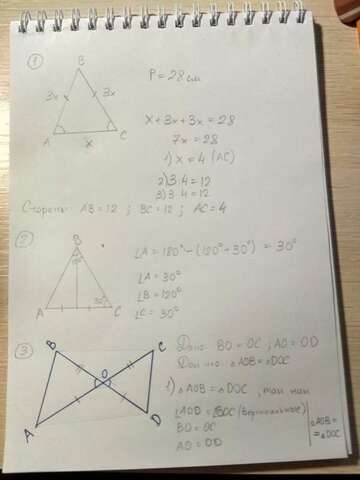 1
B
P = 28 см
3x 3x
A x C
x + 3x + 3x = 28
7x = 28
1) x = 4 (AC)
2) 3·4 = 12
3) 3·4 = 12
Стороны AB = 12 ; BC = 12 ; AC = 4
2
B
A C
∠A = 180° - (120° + 30°) = 30°
∠A = 30°
∠B = 120°
∠C = 30°
3
B C
O
A D
Дано BO = OC ; AO = OD
△AOB = △DOC
1) △AOB = △DOC , так как
(вертикальные)
BO = OC
AO = OD
△AOB =
= △DOC